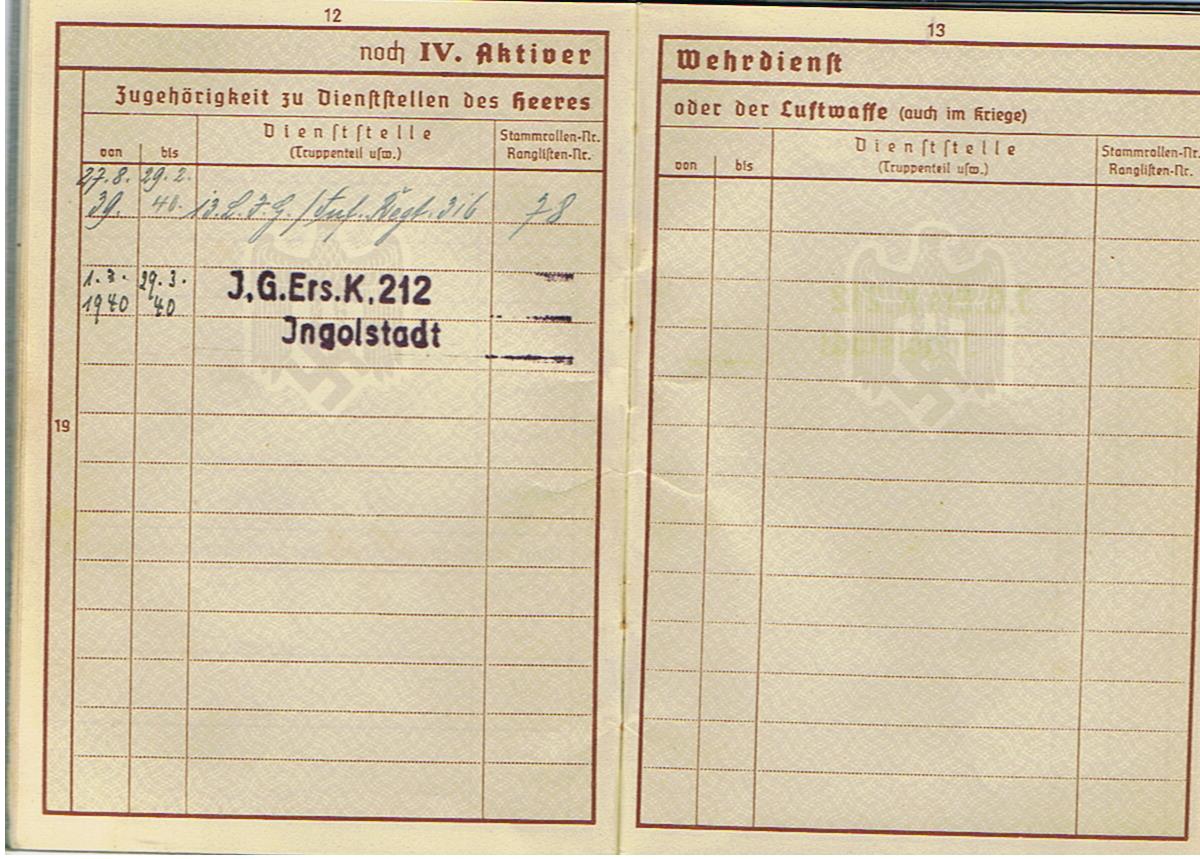 12
noch IV. Aktiver
Zugehörigkeit zu Dienststellen des Heeres
von bis
Dienststelle
(Truppenteil usw.)
Stammrollen-Nr.
Ranglisten-Nr.
27.8. 29.2.
39. 40. 13. L.I.G./Inf. Regt. 316 78
1.3. 29.3.
1940 40
J,G.Ers.K.212
Jngolstadt
19
13
Wehrdienst
oder der Luftwaffe (auch im Kriege)
von bis
Dienststelle
(Truppenteil usw.)
Stammrollen-Nr.
Ranglisten-Nr.